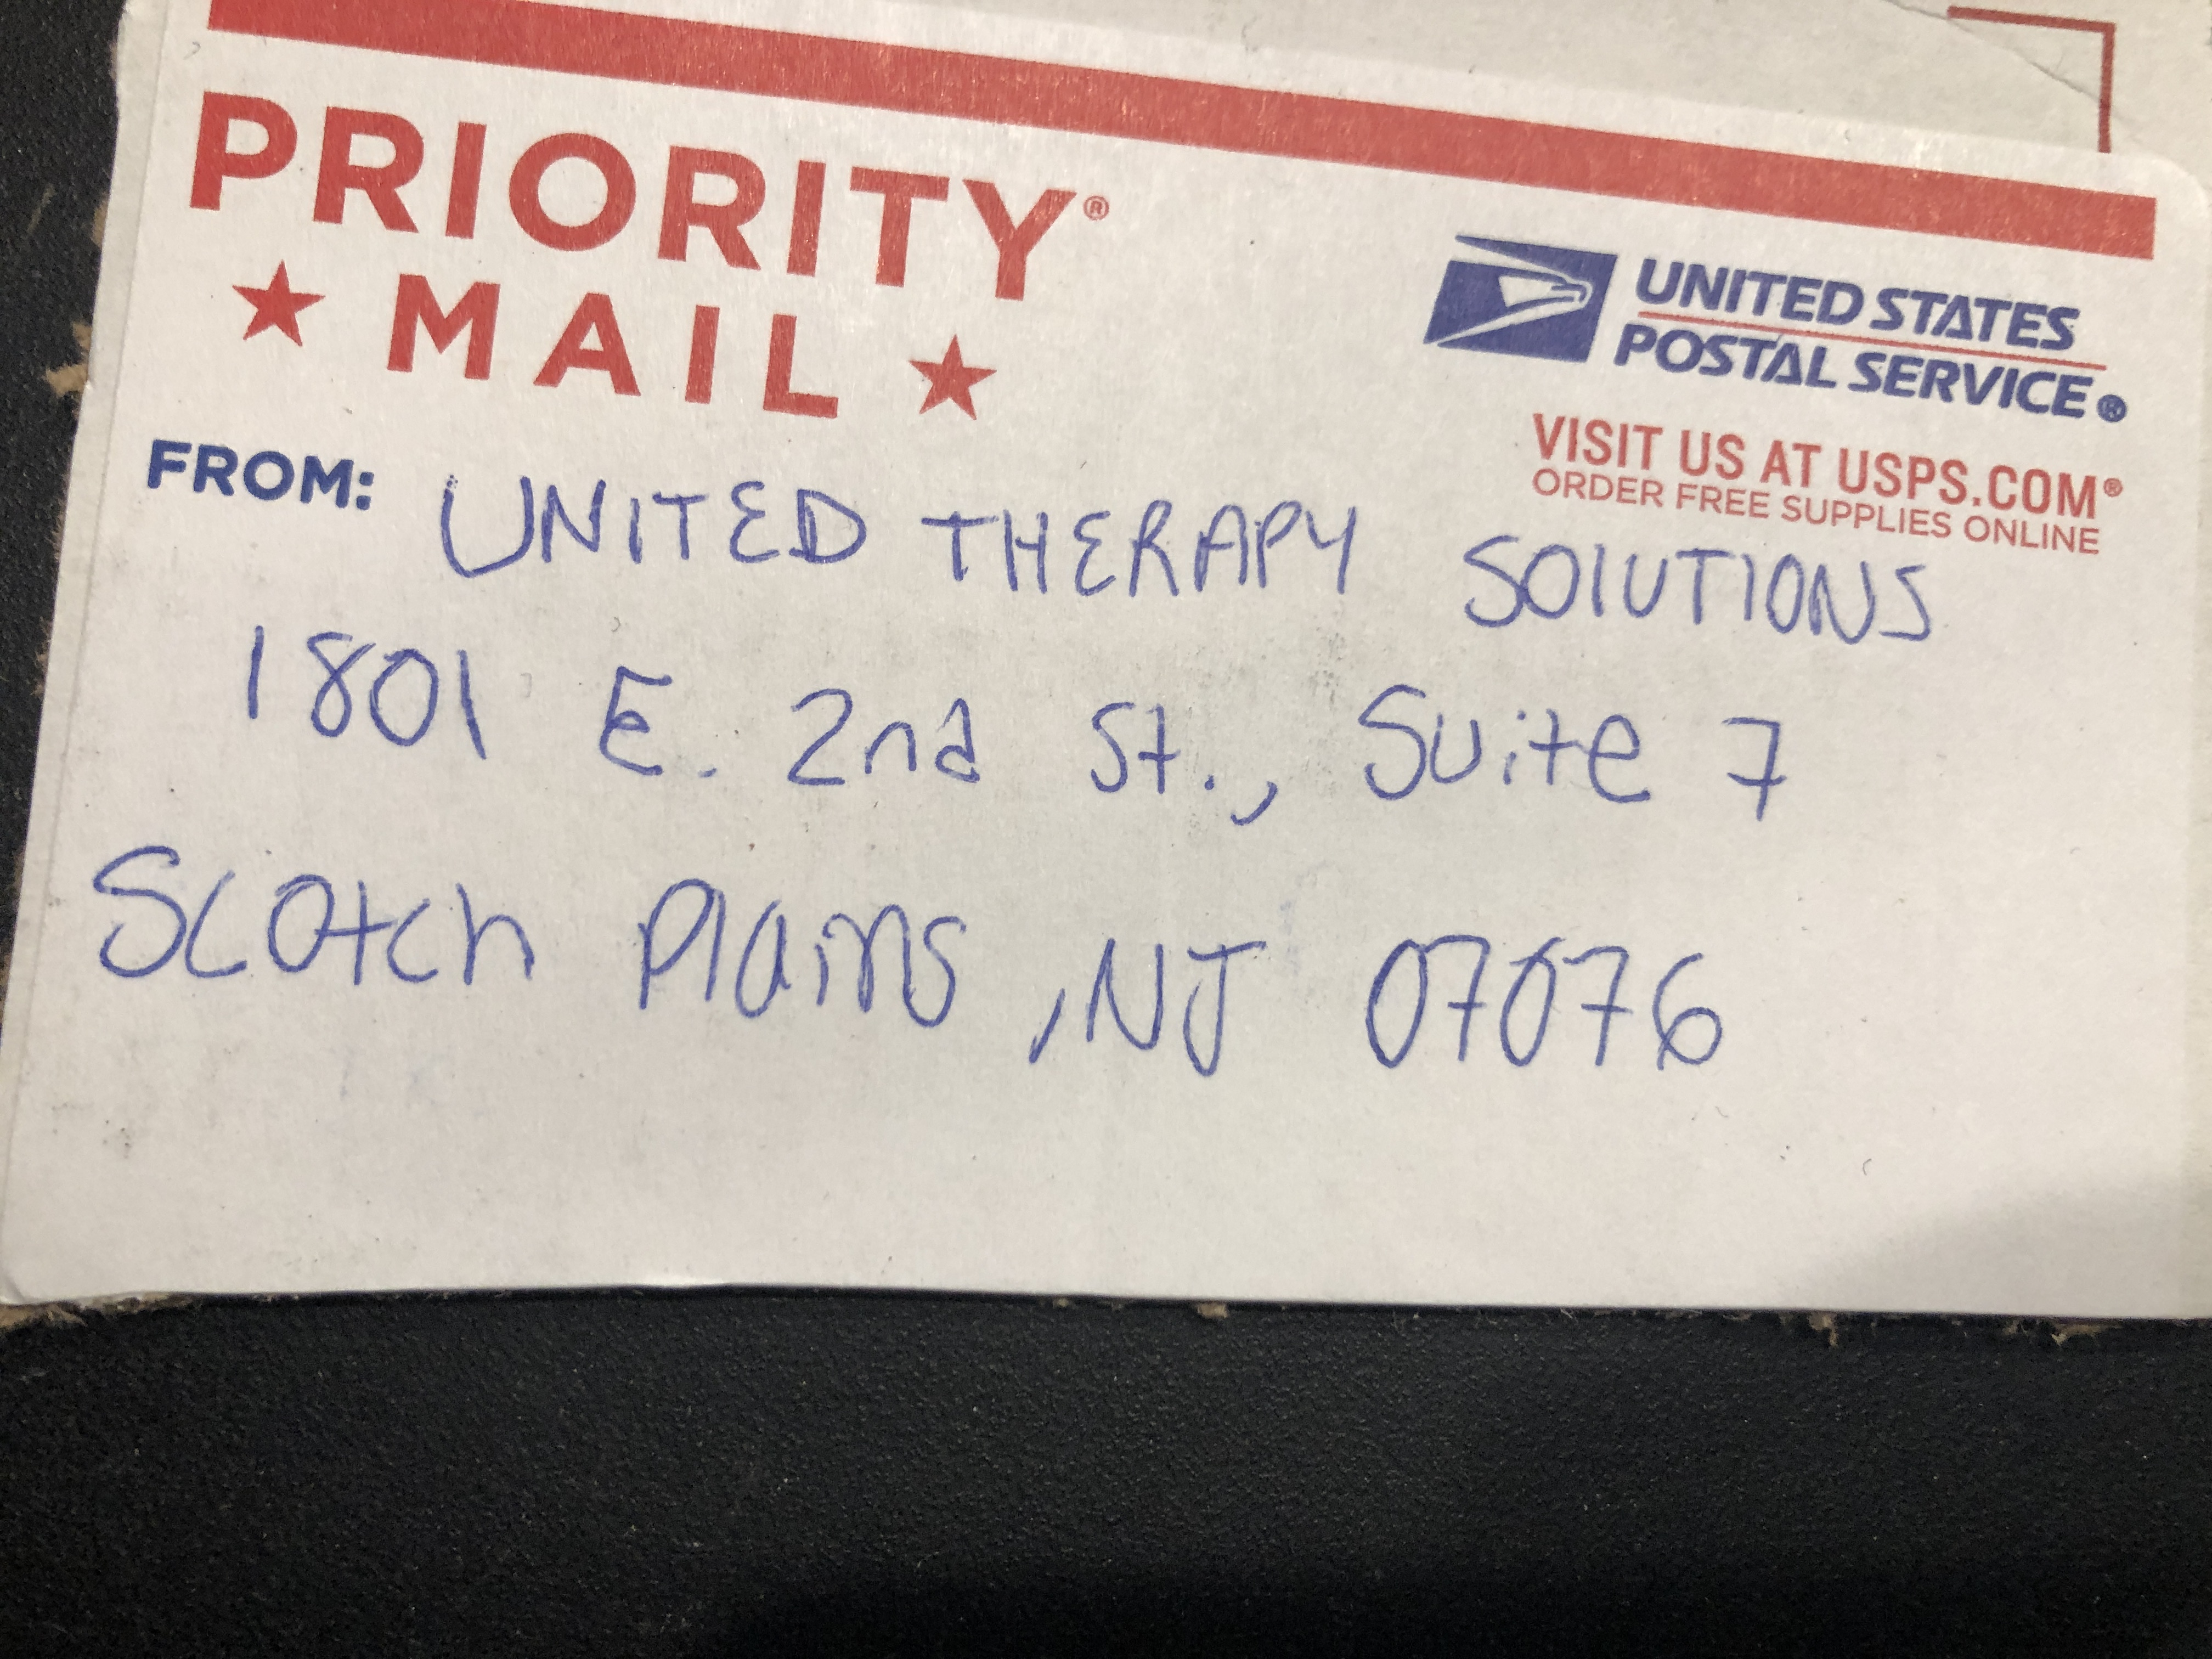 PRIORITY®
★ MAIL ★
UNITED STATES
POSTAL SERVICE®
VISIT US AT USPS.COM®
ORDER FREE SUPPLIES ONLINE
FROM: UNITED THERAPY SOlUTIONS
1801 E. 2nd St., Suite 7
Scotch Plains, NJ 07076